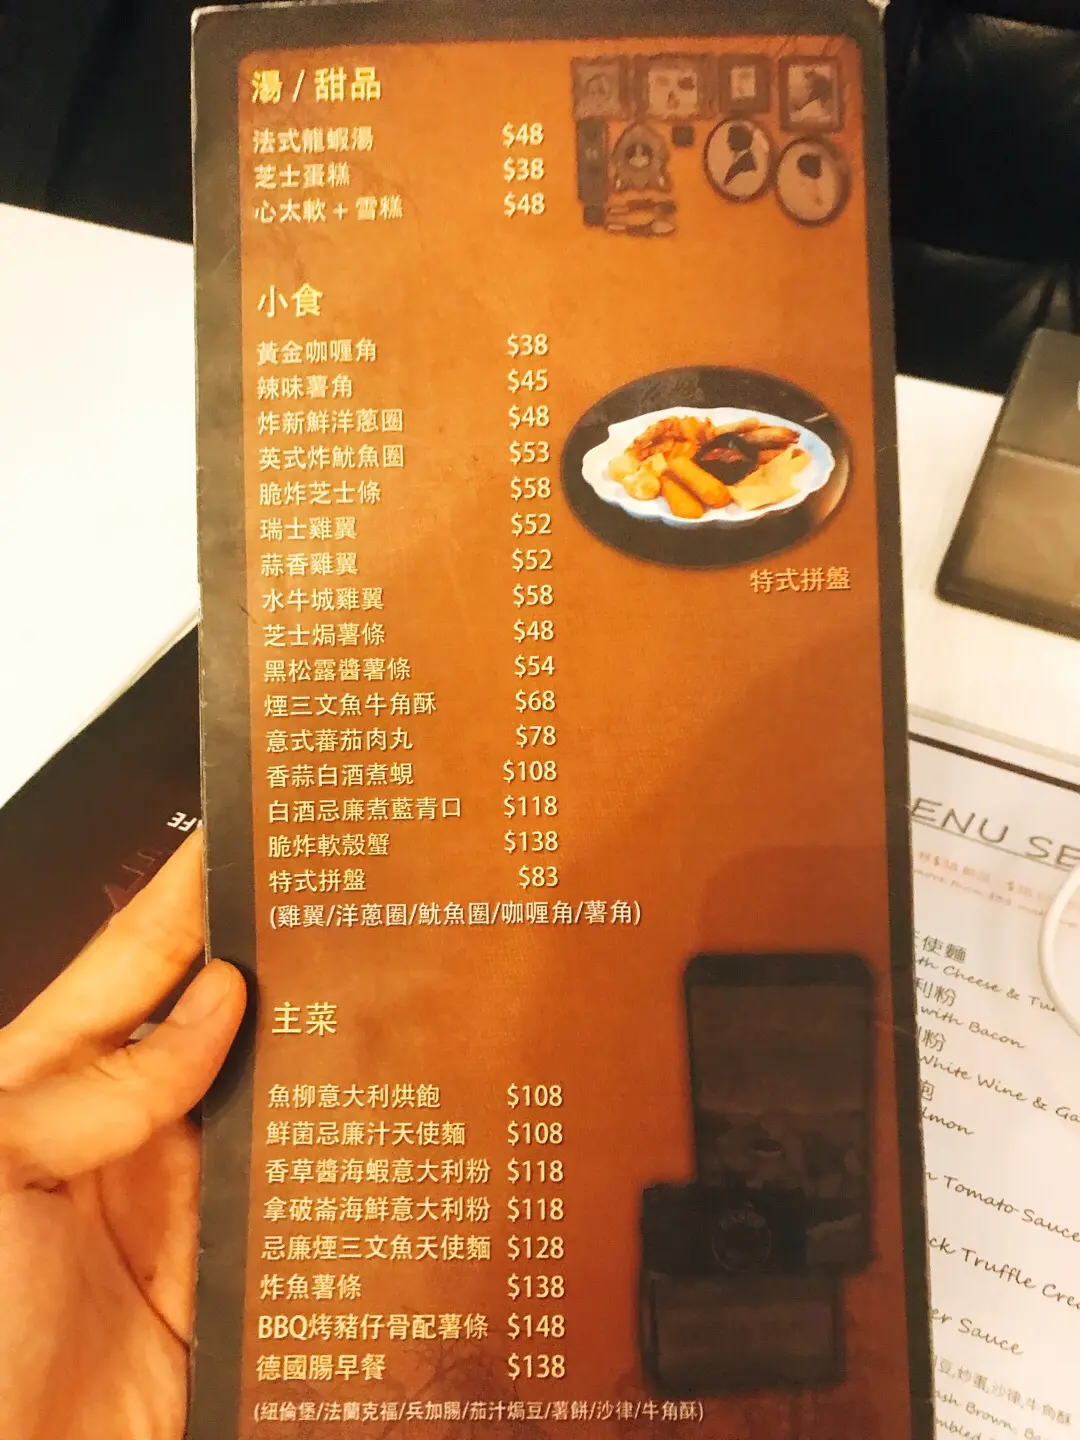 湯 / 甜品
法式龍蝦湯 $48
芝士蛋糕 $38
心太軟 + 雪糕 $48
小食
黃金咖喱角 $38
辣味薯角 $45
炸新鮮洋蔥圈 $48
英式炸魷魚圈 $53
脆炸芝士條 $58
瑞士雞翼 $52
蒜香雞翼 $52
水牛城雞翼 $58
芝士焗薯條 $48
黑松露醬薯條 $54
煙三文魚牛角酥 $68
意式蕃茄肉丸 $78
香蒜白酒煮蜆 $108
白酒忌廉煮藍青口 $118
脆炸軟殼蟹 $138
特式拼盤 $83
(雞翼/洋蔥圈/魷魚圈/咖喱角/薯角)
特式拼盤
主菜
魚柳意大利烘飽 $108
鮮菌忌廉汁天使麵 $108
香草醬海蝦意大利粉 $118
拿破崙海鮮意大利粉 $118
忌廉煙三文魚天使麵 $128
炸魚薯條 $138
BBQ烤豬仔骨配薯條 $148
德國腸早餐 $138
(紐倫堡/法蘭克福/兵加腸/茄汁焗豆/薯餅/沙律/牛角酥)
ENU SE
使麵
th Cheese & Tu
利粉
with Bacon
粉
White Wine & Ga
lmon
Tomato Sauce
ck Truffle Cre
er Sauce
豆,炒蛋,沙律,牛角酥
ash Brown, Ba
mbled